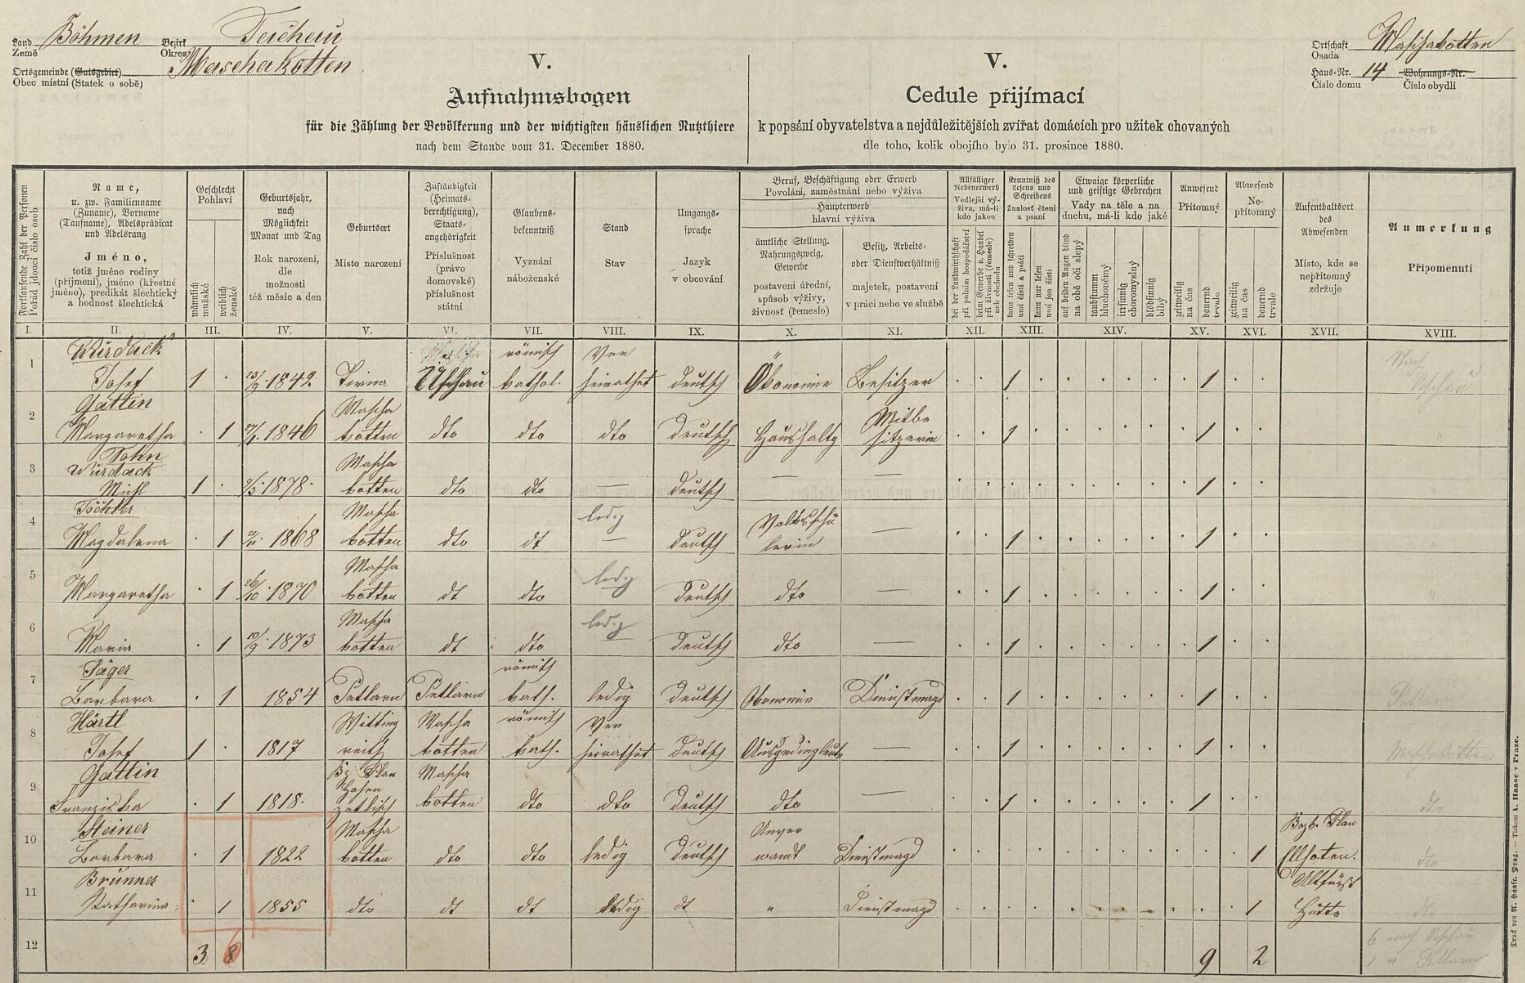 Land Böhmen Bezirk
Země Okres
Ortsgemeinde (Gutsgebiet) Maschakotten
Obec místní (Statek o sobě)
V.
Aufnahmsbogen
für die Zählung der Bevölkerung und der wichtigsten häuslichen Nutzthiere
nach dem Stande vom 31. December 1880.
V.
Cedule přijímací
k popsání obyvatelstva a nejdůležitějších zvířat domácích pro užitek chovaných
dle toho, kolik obojího bylo 31. prosince 1880.
Ortschaft Maschakotten
Osada
Haus-Nr. 14 Wohnungs-Nr.
Číslo domu Číslo obydlí
Fortlaufende Zahl der Personen
Pořád jdoucí číslo osob
Name,
u. zw. Familienname
(Zuname), Vorname
(Taufname), Adelsprädicat
und Adelsrang
Jméno,
totiž jméno rodiny
(příjmení), jméno (křestné
jméno), predikát šlechtický
a hodnost šlechtická
Geschlecht
Pohlaví
männlich
mužské
weiblich
ženské
Geburtsjahr,
nach
Möglichkeit
Monat und Tag
Rok narození,
dle
možnosti
též měsíc a den
Geburtsort
Místo narození
Zuständigkeit
(Heimats-
berechtigung),
Staats-
angehörigkeit
Příslušnost
(právo
domovské)
příslušnost
státní
Glaubens-
bekenntniß
Vyznání
náboženské
Stand
Stav
Umgangs-
sprache
Jazyk
v obcování
Beruf, Beschäftigung oder Erwerb
Povolání, zaměstnání nebo výživa
Haupterwerb
hlavní výživa
ämtliche Stellung,
Nahrungszweig,
Gewerbe
postavení úřední,
spůsob výživy,
živnost (řemeslo)
Besitz, Arbeits-
oder Dienstverhältniß
majetek, postavení
v práci nebo ve službě
Allfälliger
Nebenerwerb
Vedlejší vý-
živa, má-li
kdo jakou
Kenntniß des
Lesens und
Schreibens
Znalost čtení
a psaní
kann lesen und schreiben
umí čísti a psáti
kann nur lesen
umí jen čísti
Etwaige körperliche
und geistige Gebrechen
Vady na těle a na
duchu, má-li kdo jaké
auf beiden Augen blind
na obě oči slepý
taubstumm
hluchoněmý
irrsinnig
choromyslný
blödsinnig
blbý
Anwesend
Přítomný
zeitweilig
na čas
dauernd
trvale
Abwesend
Ne-
přítomný
zeitweilig
na čas
dauernd
trvale
Aufenthaltsort
des
Abwesenden
Místo, kde se
nepřítomný
zdržuje
Anmerkung
Připomenutí
I. II. III. IV. V. VI. VII. VIII. IX. X. XI. XII. XIII. XIV. XV. XVI. XVII. XVIII.
Würdack römisch Ver
1 Josef 1 1842 Tirna kathol. heirathet deutsch Ökonomie Besitzer 1 1
Gattin Mascha Mitbe
2 Margaretha 1 1846 kotten dto dto dto deutsch Haushaltg sitzerin 1 1
Sohn
Würdack Mascha
3 Michl 1 1878 kotten dto dto — deutsch — — 1
Töchter Mascha ledig Volksschü
4 Magdalena 1 1868 kotten dto dt — deutsch lerin — 1 1
Mascha ledig
5 Margaretha 1 1870 kotten dt dto deutsch dto — 1 1
Mascha ledig
6 Maria 1 1873 kotten dt dto deutsch dto — 1 1
Jäger römisch
7 Barbara 1 1854 Petlarn Petlarn kath. ledig deutsch Ökonomie Dienstmagd 1 1
Härtl Witting Mascha römisch Ver
8 Josef 1 1817 reith kotten kath. heirathet deutsch Ausgedingleute 1 1
Gattin Bz. Plan Mascha
9 Franziska 1 1818 kotten dto dto deutsch dto — 1 1
Steiner Mascha Anver Bezk. Plan
10 Barbara 1 1822 kotten dto dto ledig deutsch wandt Dienstmagd 1
Brunner Altfürst
11 Katharina 1 1855 dto dt dt ledig dt " Dienstmagd 1 Hütte
12 3 8 9 2
Druck von A. Haase, Prag. — Tiskem A. Haase v Praze.